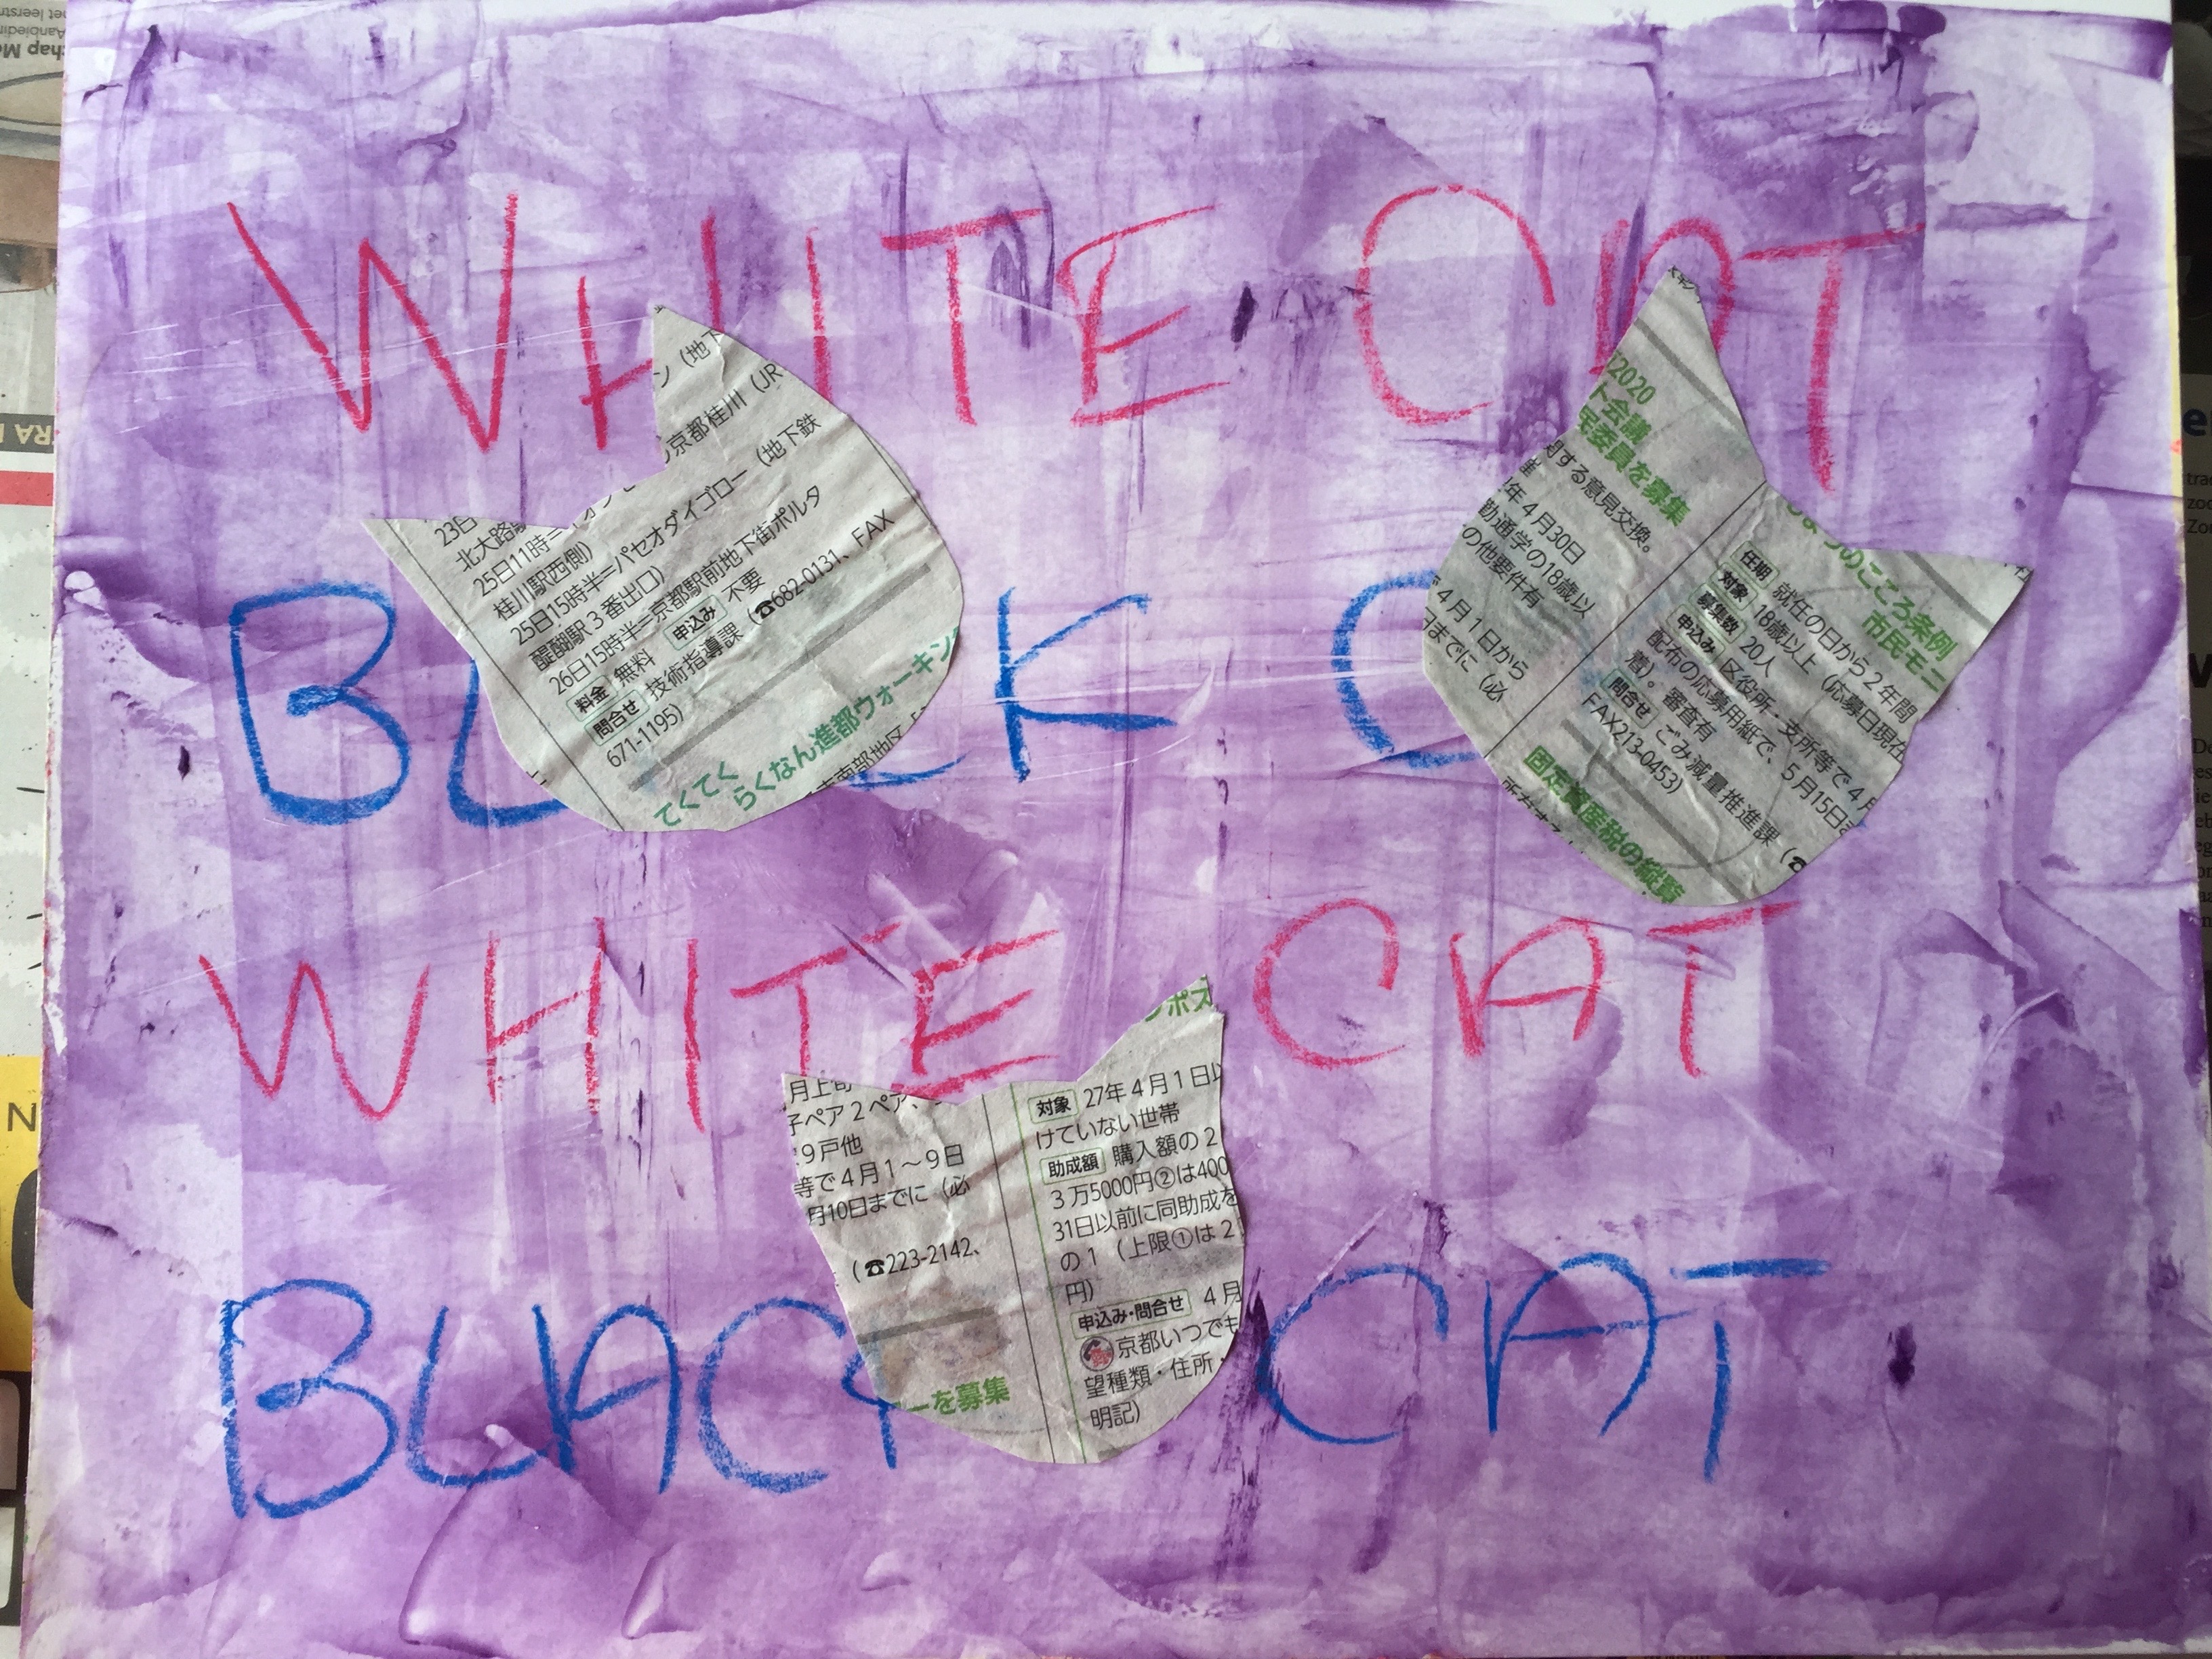 WHITE CAT
BLACK C
WHITE CAT
BLACK CAT
ン（地下
京都桂川（JR
23日
北大路
25日11時
桂川駅西側）
25日15時半＝パセオダイゴロー（地下鉄
醍醐駅3番出口）
26日15時半＝京都駅前地下街ポルタ
料金 無料 申込み 不要
問合せ 技術指導課（☎682-0131、FAX
671-1195）
てくてく
らくなん進都ウォーキン
南部地区
2020
ト会議
民委員を募集
関する意見交換。
年4月30日
勤通学の18歳以
の他要件有
4月1日から
日までに（必
のこころ条例
市民モニ
任期 就任の日から2年間
対象 18歳以上（応募日現在
募集数 20人
申込み 区役所・支所等で4月
配布の応募用紙で、5月15日
着）。審査有
問合せ ごみ減量推進課（☎
FAX213-0453）
固定資産税の縦覧
ポス
月上旬
子ペア2ペア、
9戸他
等で4月1～9日
月10日までに（必
（☎223-2142、
ーを募集
対象 27年4月1日以
けていない世帯
助成額 購入額の2
3万5000円②は400
31日以前に同助成を
の1（上限①は2
円）
申込み・問合せ 4月
京都いつでも
望種類・住所・
明記）